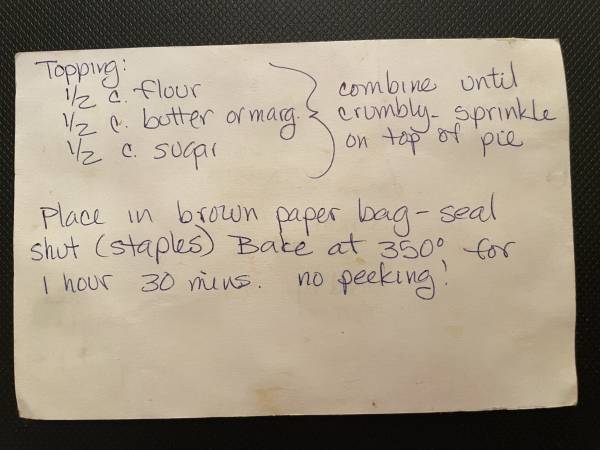 Topping:
1/2 c. flour
1/2 c. butter or marg.
1/2 c. sugar
combine until
crumbly - sprinkle
on top of pie
Place in brown paper bag - seal
shut (staples) Bake at 350° for
1 hour 30 mins. no peeking!